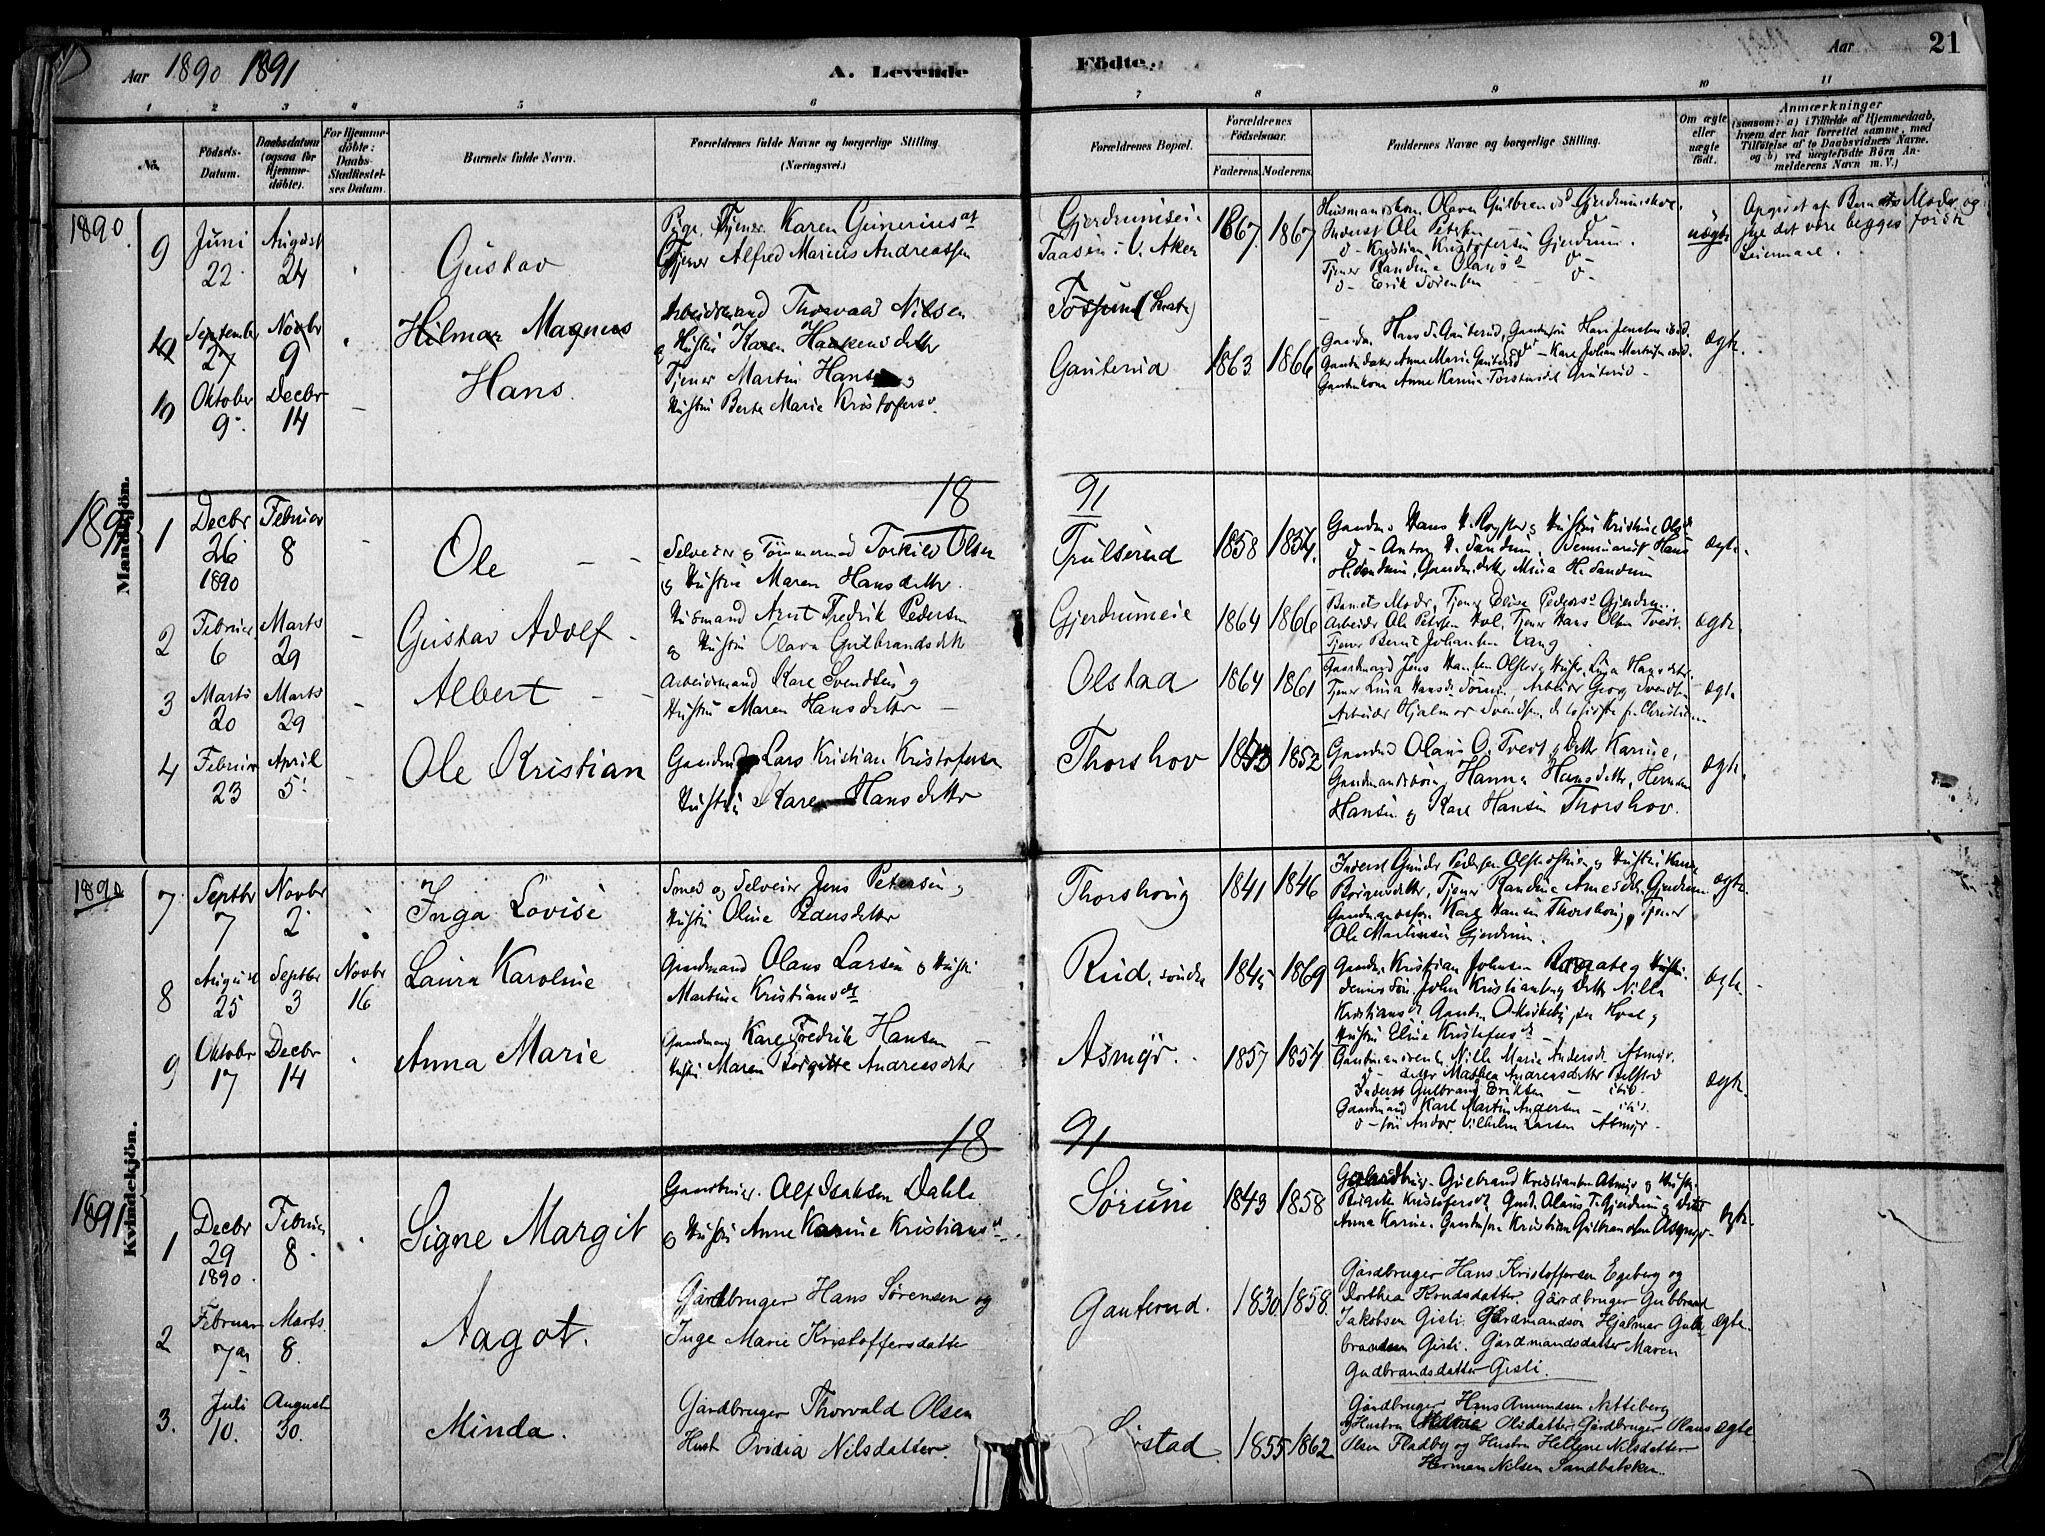 Aar 1890 1891 A. Levende Födte. Aar 21
1 2 3 4 5 6 7 8 9 10 11
No. Födsels-Datum. Daabsdatum (ogsaa for Hjemme-döbte). For Hjemme-döbte: Daabs-Stadfæstel-ses Datum. Barnets fulde Navn. Forældrenes fulde Navne og borgerlige Stilling. (Næringsvei.) Forældrenes Bopæl. Forældrenes Födselsaar. Faderens. Moderens. Faddernes Navne og borgerlige Stilling. Om ægte eller uægte födt. Anmærkninger (saasom: a) i Tilfælde af Hjemmedaab, hvem der har forrettet samme, med Tilföielse af to Daabsvidners Navne, og b) ved uægtefödte Börn An-melderens Navn m. V.)
1890.
Mandkjön.
9 Juni 22. August 24 Gustav
Pige, Tjener Karen Gunerius dt
Tjener Alfred Marius Andreassen
Gjerdrumseie
Taasen i V. Aker
1867 1867
Husmandskone Olava Gulbrands d Gjerdrumseie
Inderst Ole Petersen
d- Kristian Kristofersen Gjerdrum.
Tjener Randine Olaus d -d-
d- Erik Sørensen
uægte
Opgivet af Barnets Moder og
sige det være begges første
Leiermaal.
10 September 27 Novbr 9 Hilmar Magnus
Arbeidsmand Thorvald Nilsen
og Hustru Karen Haakensdatter
Fossum
10 Oktober 9. Decbr 14 Hans.
Tjener Martin Hansen og
Hustru Berte Marie Kristofersd.
Gauterud 1863 1866
Gaardm. Hans S. Gauterud, Gaardmsøn Hans Jensen ibid.
Gaardmdatter Anne Marie Gauterud - Karl Johan Martinsen ibid.
Gaardmkone Anne Karine Torstensd Gauterud -
ægte.
1891
18 91
1 Decbr 26 1890 Februar 8 Ole
Selveier og Tømmermd Torkild Olsen
og Hustru Maren Hansdatter.
Trulserud 1858 1854.
Gaardm. Hans H. og Hustru Kristine Ols d
d- Anton H. Sandum, Seminarist Hans
H. Sandum, Gaardm.datter Mina H. Sandum
ægte.
2 Februar 6 Marts 29 Gustav Adolf
Husmand Arnt Fredrik Pedersen
og Hustru Olava Gulbrandsdtr
Gjerdrumeie 1864 1866
Barnets Moder, Tjener Elise Peders d Gjerdrum.
Arbeider Ole Petersen Hol, Tjener Hans Olsen Tveit.
Tjener Bernt Johansen Vang.
ægte.
3 Marts 20 Marts 29 Albert
Arbeidsmand Karl Svendsen og
Hustru Maren Hansdatter
Olstad 1864 1861
Gaardmand Jens Hansen Olstad og Hustru Lina Hansdatter.
Tjener Lina Hansd. Sørum, Arbeider Georg Svendsen
Arbeider Hjalmar Svendsen, de to sidste fra Christiania
ægte
4 Februar 23 April 5. Ole Kristian
Gaardmd Lars Kristian Kristofersen
Hustru Karen Hansdatter
Thorshov 1852
Gaardmd Olaus O. Tveit og Datter Karine,
Gaardmandsbørn, Hanna Hansdatter, Herman
Hansen og Karl Hansen Thorshov.
ægte.
1890
Kvindekjön.
7. Septbr 7 Novbr 2 Inga Lovise
Smed og Selveier Jens Petersen og
Hustru Oline Pedersdatter
Thorshoug 1841 1846
Inderst Gunder Pedersen Olstadstuen og Hustru Karen
Borgersdatter, Tjener Randine Arnesdtr. Gjerdrum
Gaardmandssøn Karl Hansen Thorshoug, Tjener
Ole Martinsen Gjerdrum.
ægte.
8 August 25 Septbr 3 Novbr 16 Laura Karoline
Gaardmand Olaus Larsen og Hustru
Martina Kristians dt
Rud, søndre 1845 1869
Gaardm. Kristian Johnsen og Hustru
dennes Søn John Kristiansen og Datter Nilla
Kristians d
Hustru Eline Kristofers d
ægte.
9 Oktober 17 Decbr 14 Anna Marie
Gaardmand Karl Fredrik Hansen
Hustru Maren Borgitte Andreasdatter
Asmyr. 1857 1854
Gaardmandsenke Nille Marie Andersd. Asmyr.
d- datter Mathea Andreasdatter
Inderst Gulbrand Eriksen - ibid-
Gaardmand Karl Martin Andersen - ibid.
d- søn Andor Vilhelm Larsen Asmyr.
ægte.
18 91
1891
1 Decbr 29 1890. Februar 8. Signe Margit
Gaardbruger. Alf Isaksen Dahl
og Hustru Anne Karine Kristians dt
Sørum 1843 1858
Gaardbrug. Gulbrand Kristiansen Asmyr og Hustru
Birgitte Kristofers d, Gmd. Olaus T. Gjerdrum og Datter
Anna Karine. Gaardmsøn Kristian Gulbrandsen Asmyr
ægte.
2 Februar 7de Marts. 8. Aagot.
Gårdbruger Hans Sørensen og
Inge Marie Kristoffersdatter
Gauterud. 1830. 1858.
Gårdbruger Hans Kristoffersen Egeberg og
Dorthea Knudsdatter. Gårdbruger Gulbrand
Jakobsen Gisti. Gårdmandsøn Hjalmer Gul-
brandsen Gisti. Gårdmandsdatter Maren
Gudbrandsdatter Gisti.
ægte.
3. Juli 10. August 30. Minda.
Gårdbruger Thorvald Olsen
Hust. Ovidia Nilsdatter.
1855 1862
Gårdbruger Hans Amundsen Nitteberg
og Hustru Olsdatter, Gårdbruger Olaus
Olsen Fladby og Hustru Hellene Nilsdatter
Herman Nilsen Sandbakken.
ægte